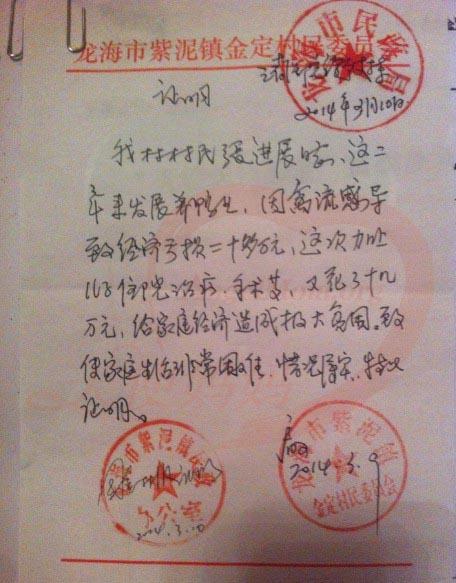 龙海市紫泥镇金定村民委员会
龙海市民政局
2014年3月10日
证明
我村村民张进展同志、这二
年来发展养鸭生、因禽流感导
致经济亏损二十多万元，这次
住院治病，手术费、又花了十几
万元，给家庭经济造成极大负困。致
使家庭生活非常困难，情况属实，特此
证明。
龙海市紫泥镇
办公室
2014.3.10
属
2014.3.9
龙海市紫泥镇
金定村民委员会